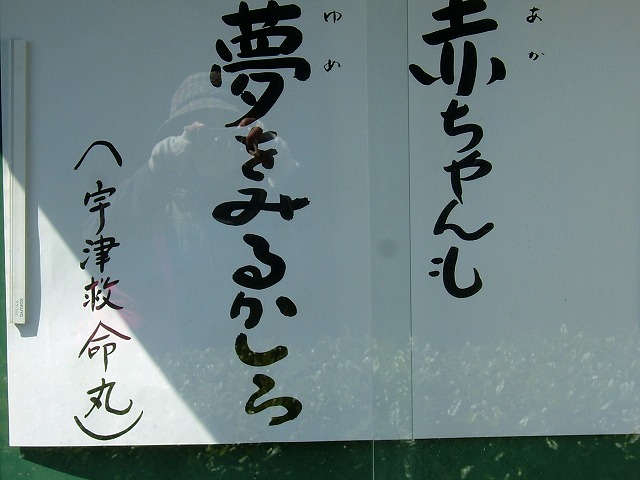 あか
赤ちゃんも
ゆめ
夢をみるかしら
(宇津救命丸)
KOKUYO